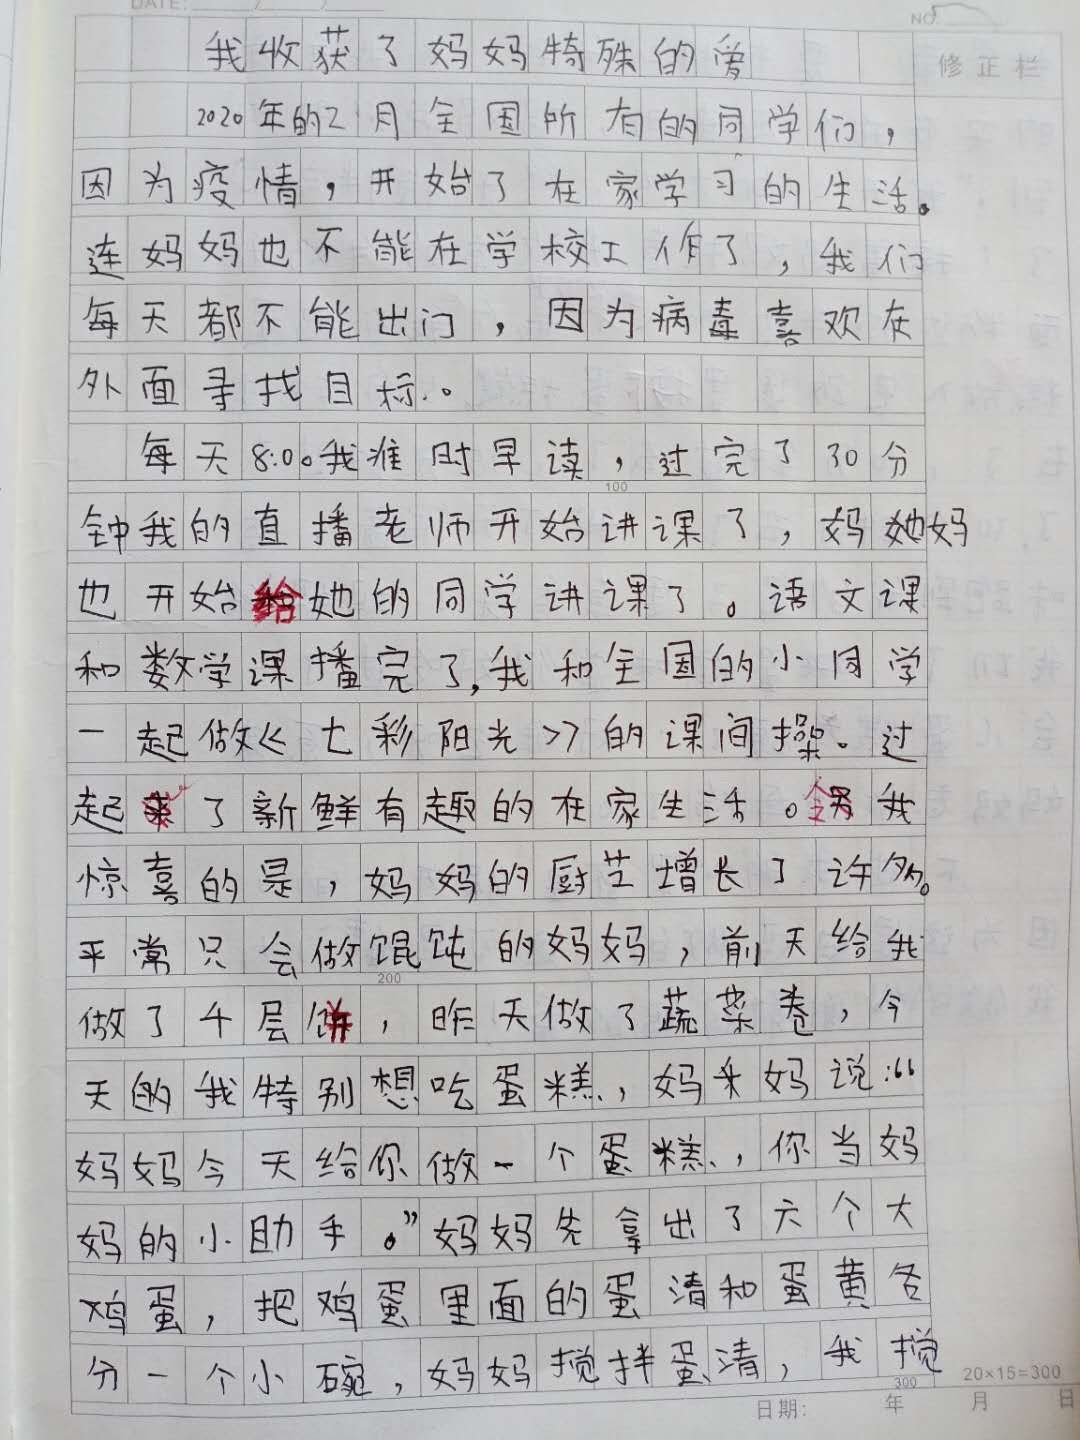 DATE:
NO.
我收获了妈妈特殊的爱
修正栏
2020年的2月全国所有的同学们，
因为疫情，开始了在家学习的生活。
连妈妈也不能在学校工作了，我们
每天都不能出门，因为病毒喜欢在
外面寻找目标。
每天8:00我准时早读，过完了30分
100
钟我的直播老师开始讲课了，妈她妈
也开始给她的同学讲课了。语文课
和数学课播完了，我和全国的小同学
一起做《七彩阳光》的课间操。过
起了新鲜有趣的在家生活。令我
惊喜的是，妈妈的厨艺增长了许多。
平常只会做馄饨的妈妈，前天给我
200
做了千层饼，昨天做了蔬菜卷，今
天的我特别想吃蛋糕，妈妈说：“
妈妈今天给你做一个蛋糕，你当妈
妈的小助手。”妈妈先拿出了六个大
鸡蛋，把鸡蛋里面的蛋清和蛋黄各
分一个小碗，妈妈搅拌蛋清，我搅
300
20×15=300
日期: 年 月 日